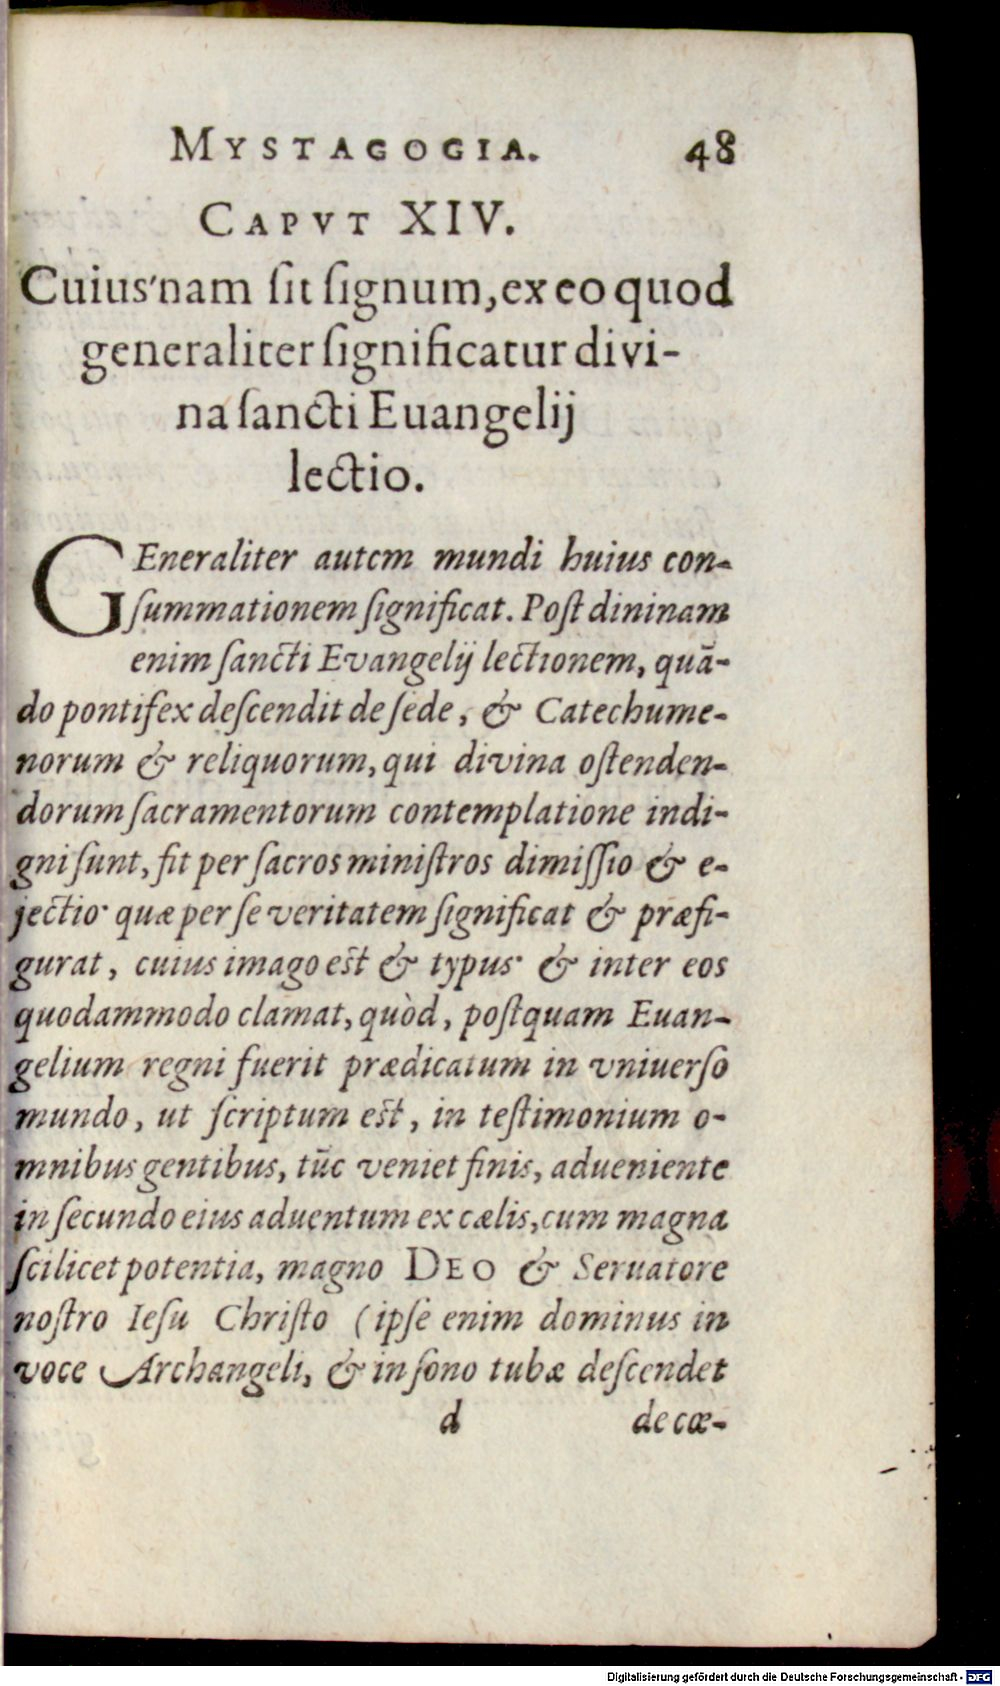 MYSTAGOGIA. 48
CAPVT XIV.
Cuius'nam ſit ſignum, ex eo quod
generaliter ſignificatur divi-
na ſancti Euangelij
lectio.
GEneraliter autem mundi huius con-
ſummationem ſignificat. Poſt dininam
enim ſancti Evangelij lectionem, quā-
do pontifex deſcendit de ſede, & Catechume-
norum & reliquorum, qui divina oſtenden-
dorum ſacramentorum contemplatione indi-
gni ſunt, fit per ſacros miniſtros dimiſſio & e-
jectio· quæ per ſe veritatem ſignificat & præfi-
gurat, cuius imago est & typus· & inter eos
quodammodo clamat, quòd, poſtquam Euan-
gelium regni fuerit prædicatum in vniuerſo
mundo, ut ſcriptum est, in teſtimonium o-
mnibus gentibus, tūc veniet finis, adueniente
in ſecundo eius aduentum ex cælis, cum magna
ſcilicet potentia, magno DEO & Seruatore
noſtro Ieſu Chriſto (ipſe enim dominus in
voce Archangeli, & in ſono tubæ deſcendet
d de cæ-
Digitalisierung gefördert durch die Deutsche Forschungsgemeinschaft - DFG